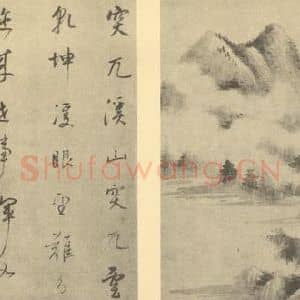 突兀溪山突兀雲
乾坤眼望難分
世事渾
Shufawang.CN